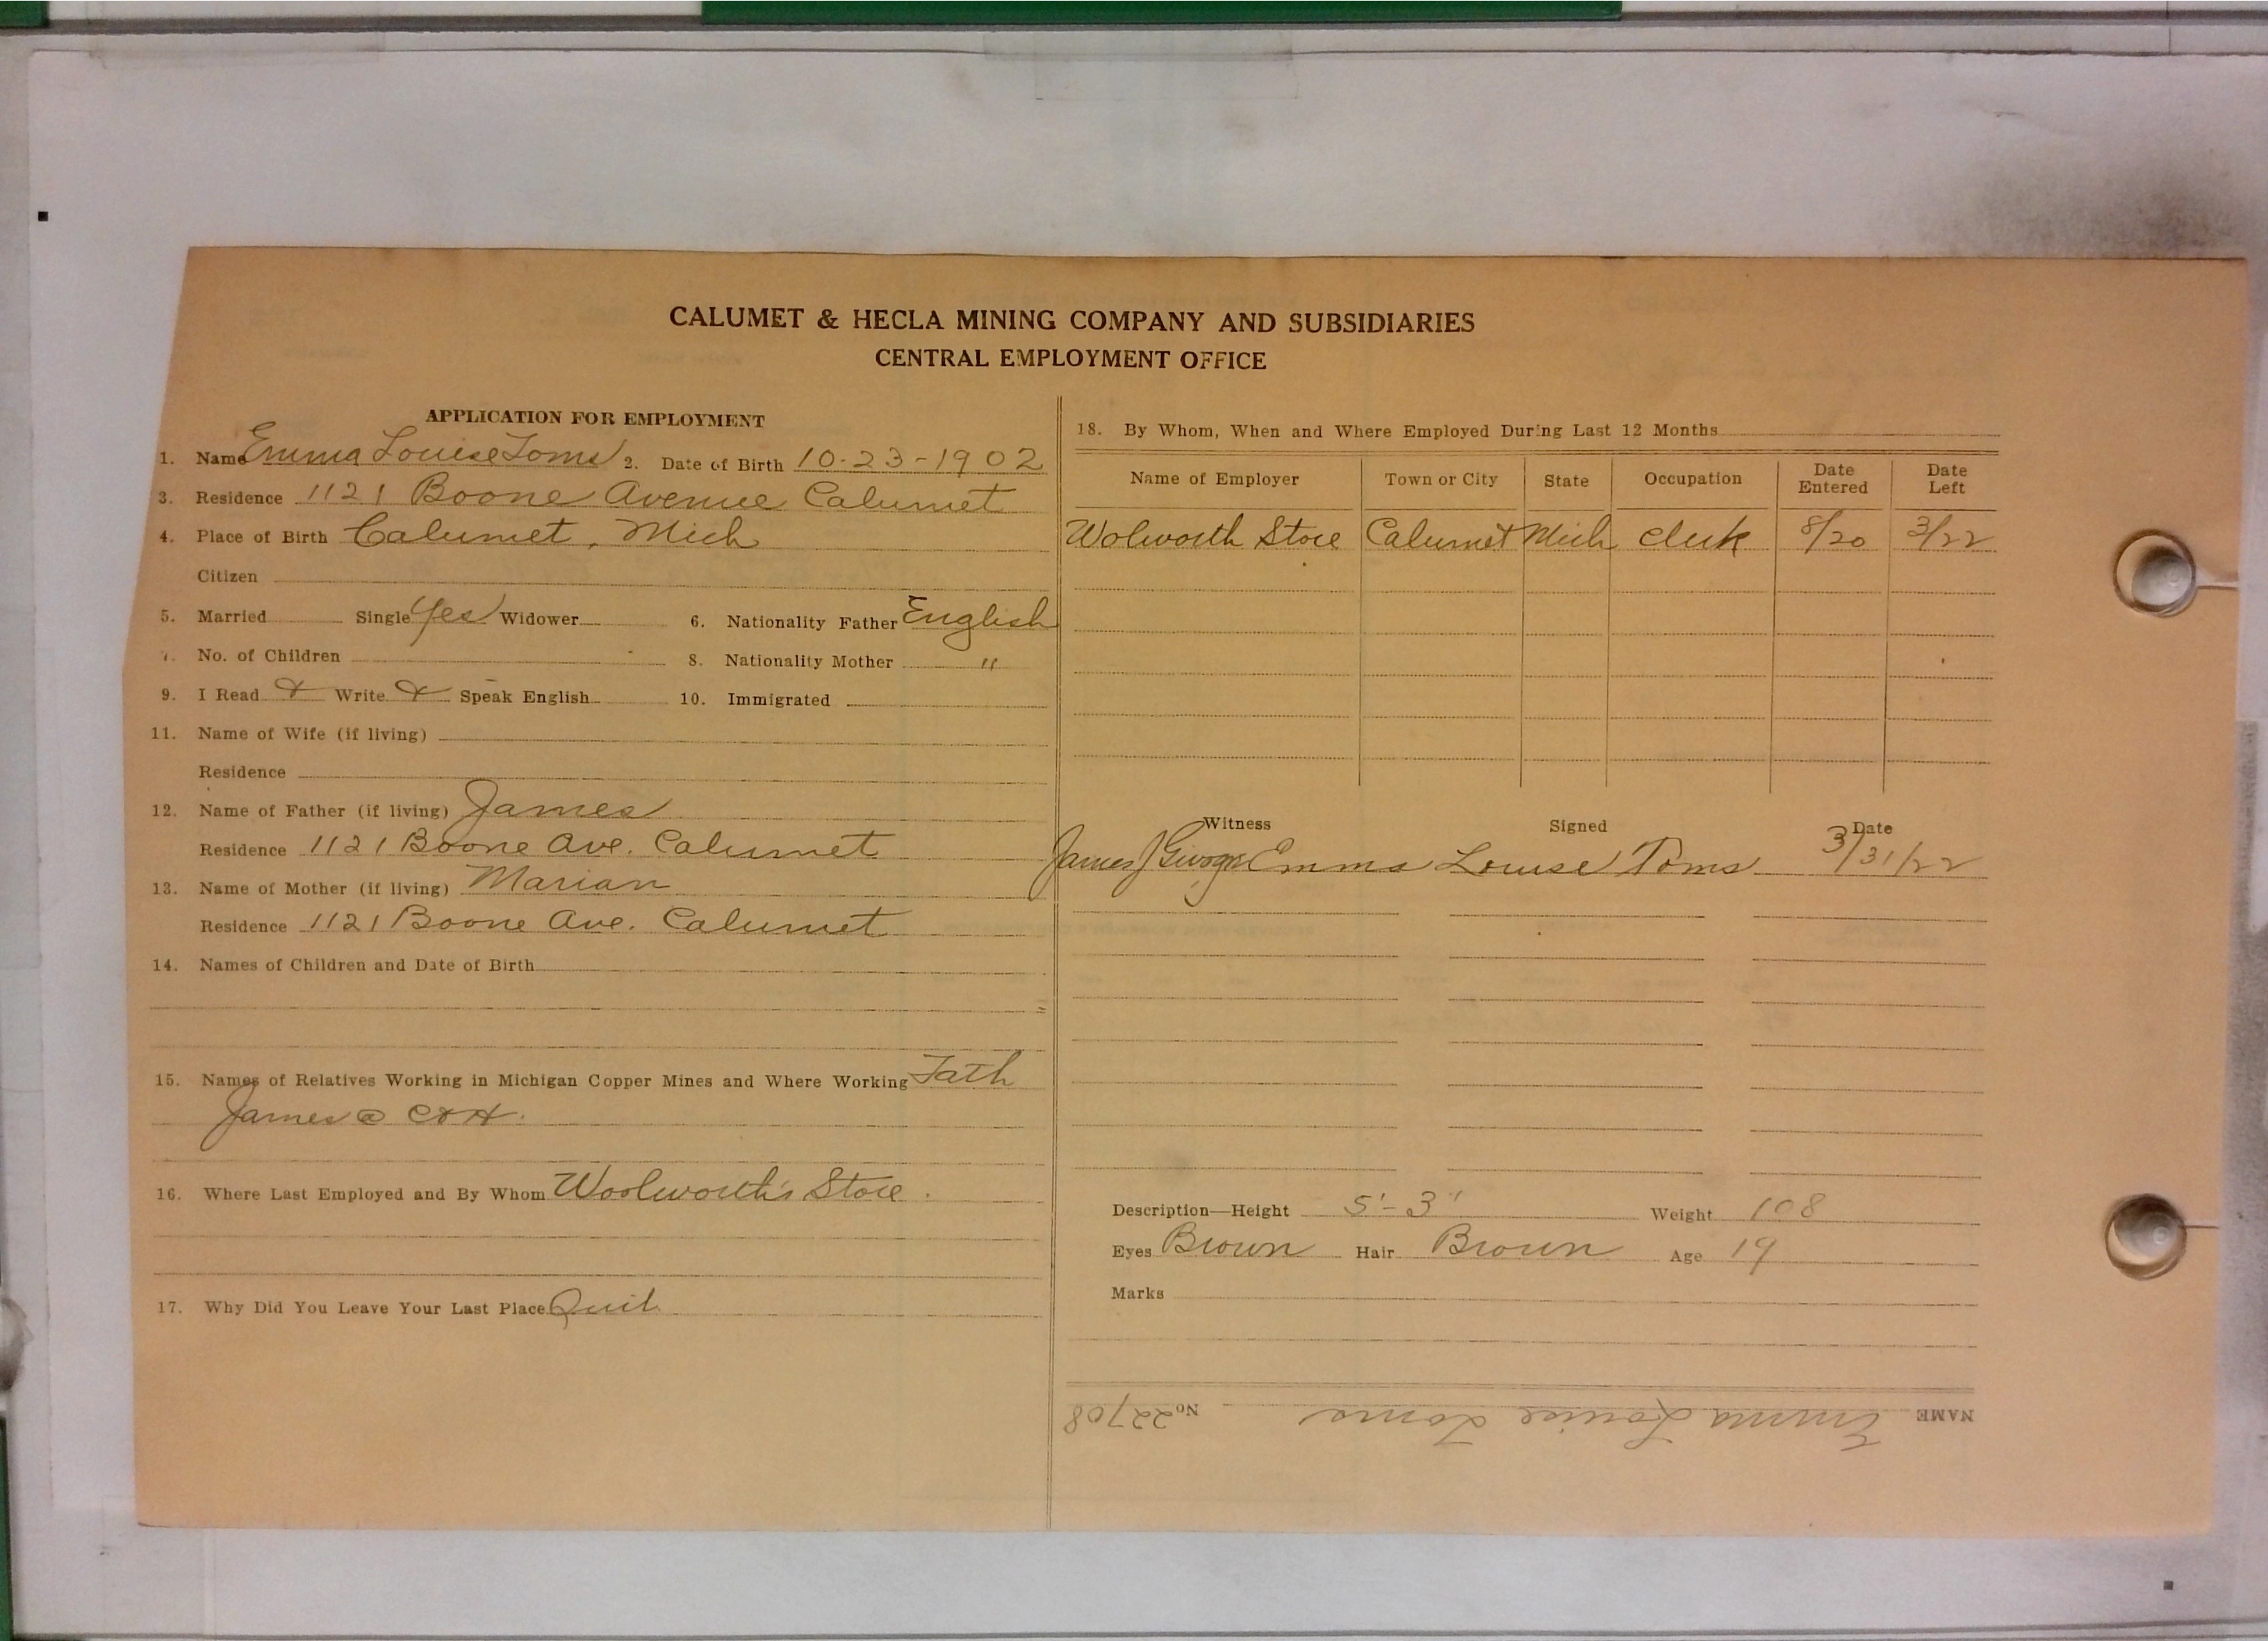 CALUMET & HECLA MINING COMPANY AND SUBSIDIARIES
CENTRAL EMPLOYMENT OFFICE
APPLICATION FOR EMPLOYMENT
1. Name Emma Louise Toms 2. Date of Birth 10-23-1902
3. Residence 1121 Boone Avenue Calumet
4. Place of Birth Calumet, Mich
Citizen
5. Married Single Yes Widower 6. Nationality Father English
7. No. of Children 8. Nationality Mother "
9. I Read & Write & Speak English 10. Immigrated
11. Name of Wife (if living)
Residence
12. Name of Father (if living) James
Residence 1121 Boone Ave. Calumet
13. Name of Mother (if living) Marian
Residence 1121 Boone Ave. Calumet
14. Names of Children and Date of Birth
15. Names of Relatives Working in Michigan Copper Mines and Where Working Fath
James @ C&H.
16. Where Last Employed and By Whom Woolworth's Store.
17. Why Did You Leave Your Last Place Quit
18. By Whom, When and Where Employed During Last 12 Months
Name of Employer Town or City State Occupation Date Entered Date Left
Wolworth Store Calumet Mich clerk 8/20 3/22
Witness Signed Date
James J Emma Louise Toms 3/31/22
Description—Height 5'-3" Weight 108
Eyes Brown Hair Brown Age 19
Marks
NAME Emma Louise Toms No 22708